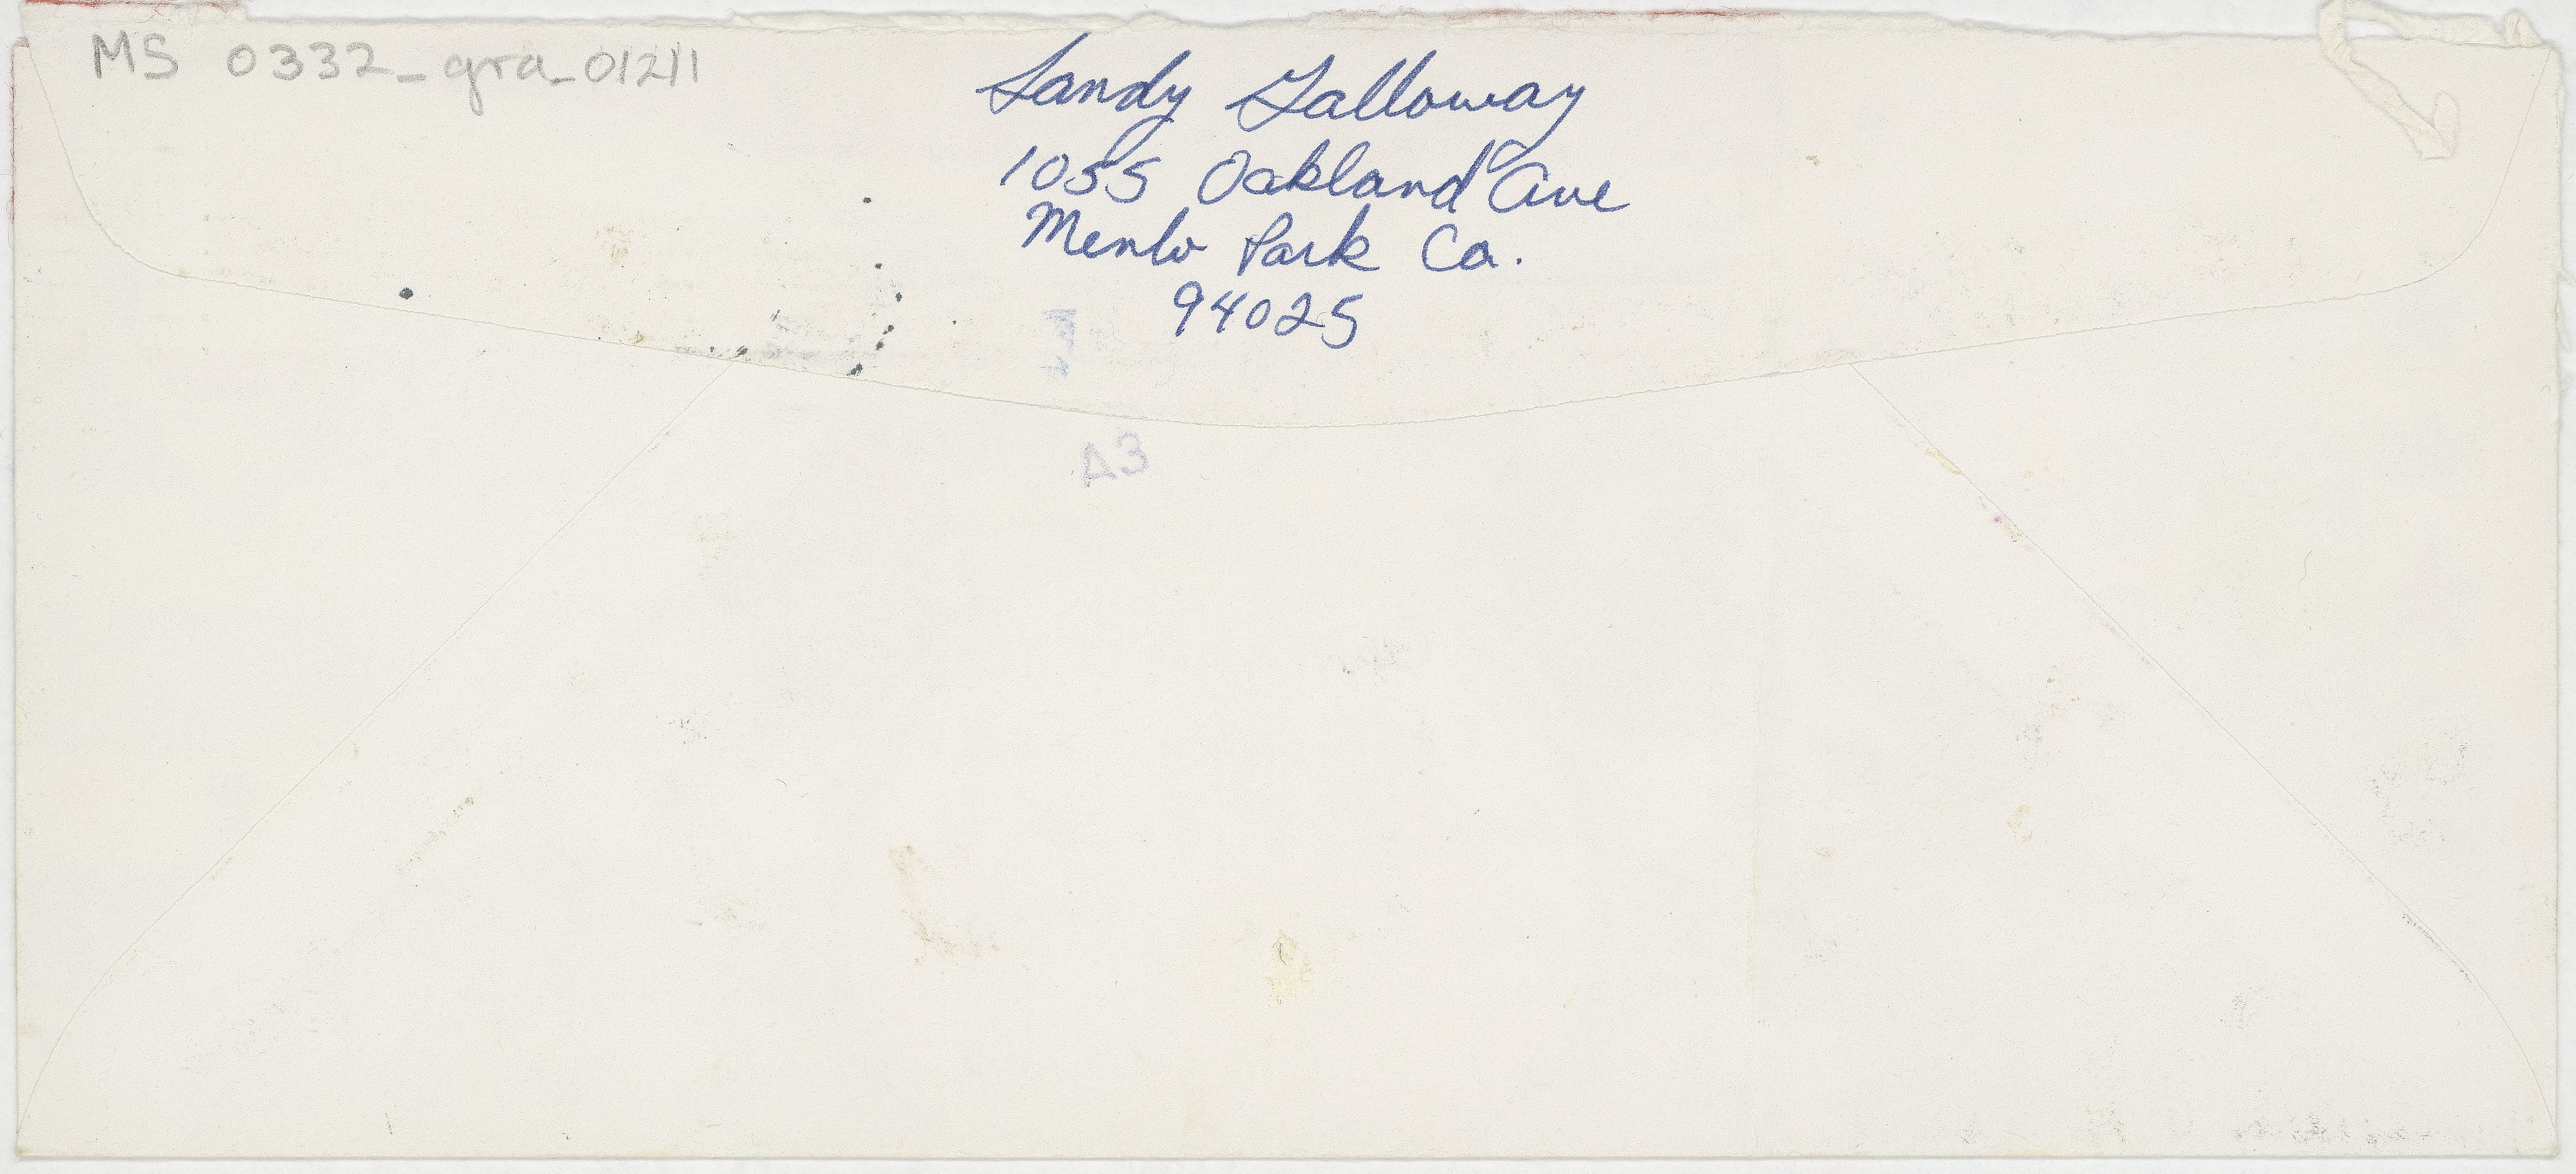 MS 0332_gra_01211
Sandy Galloway
1055 Oakland Ave
Menlo Park Ca.
94025
A3